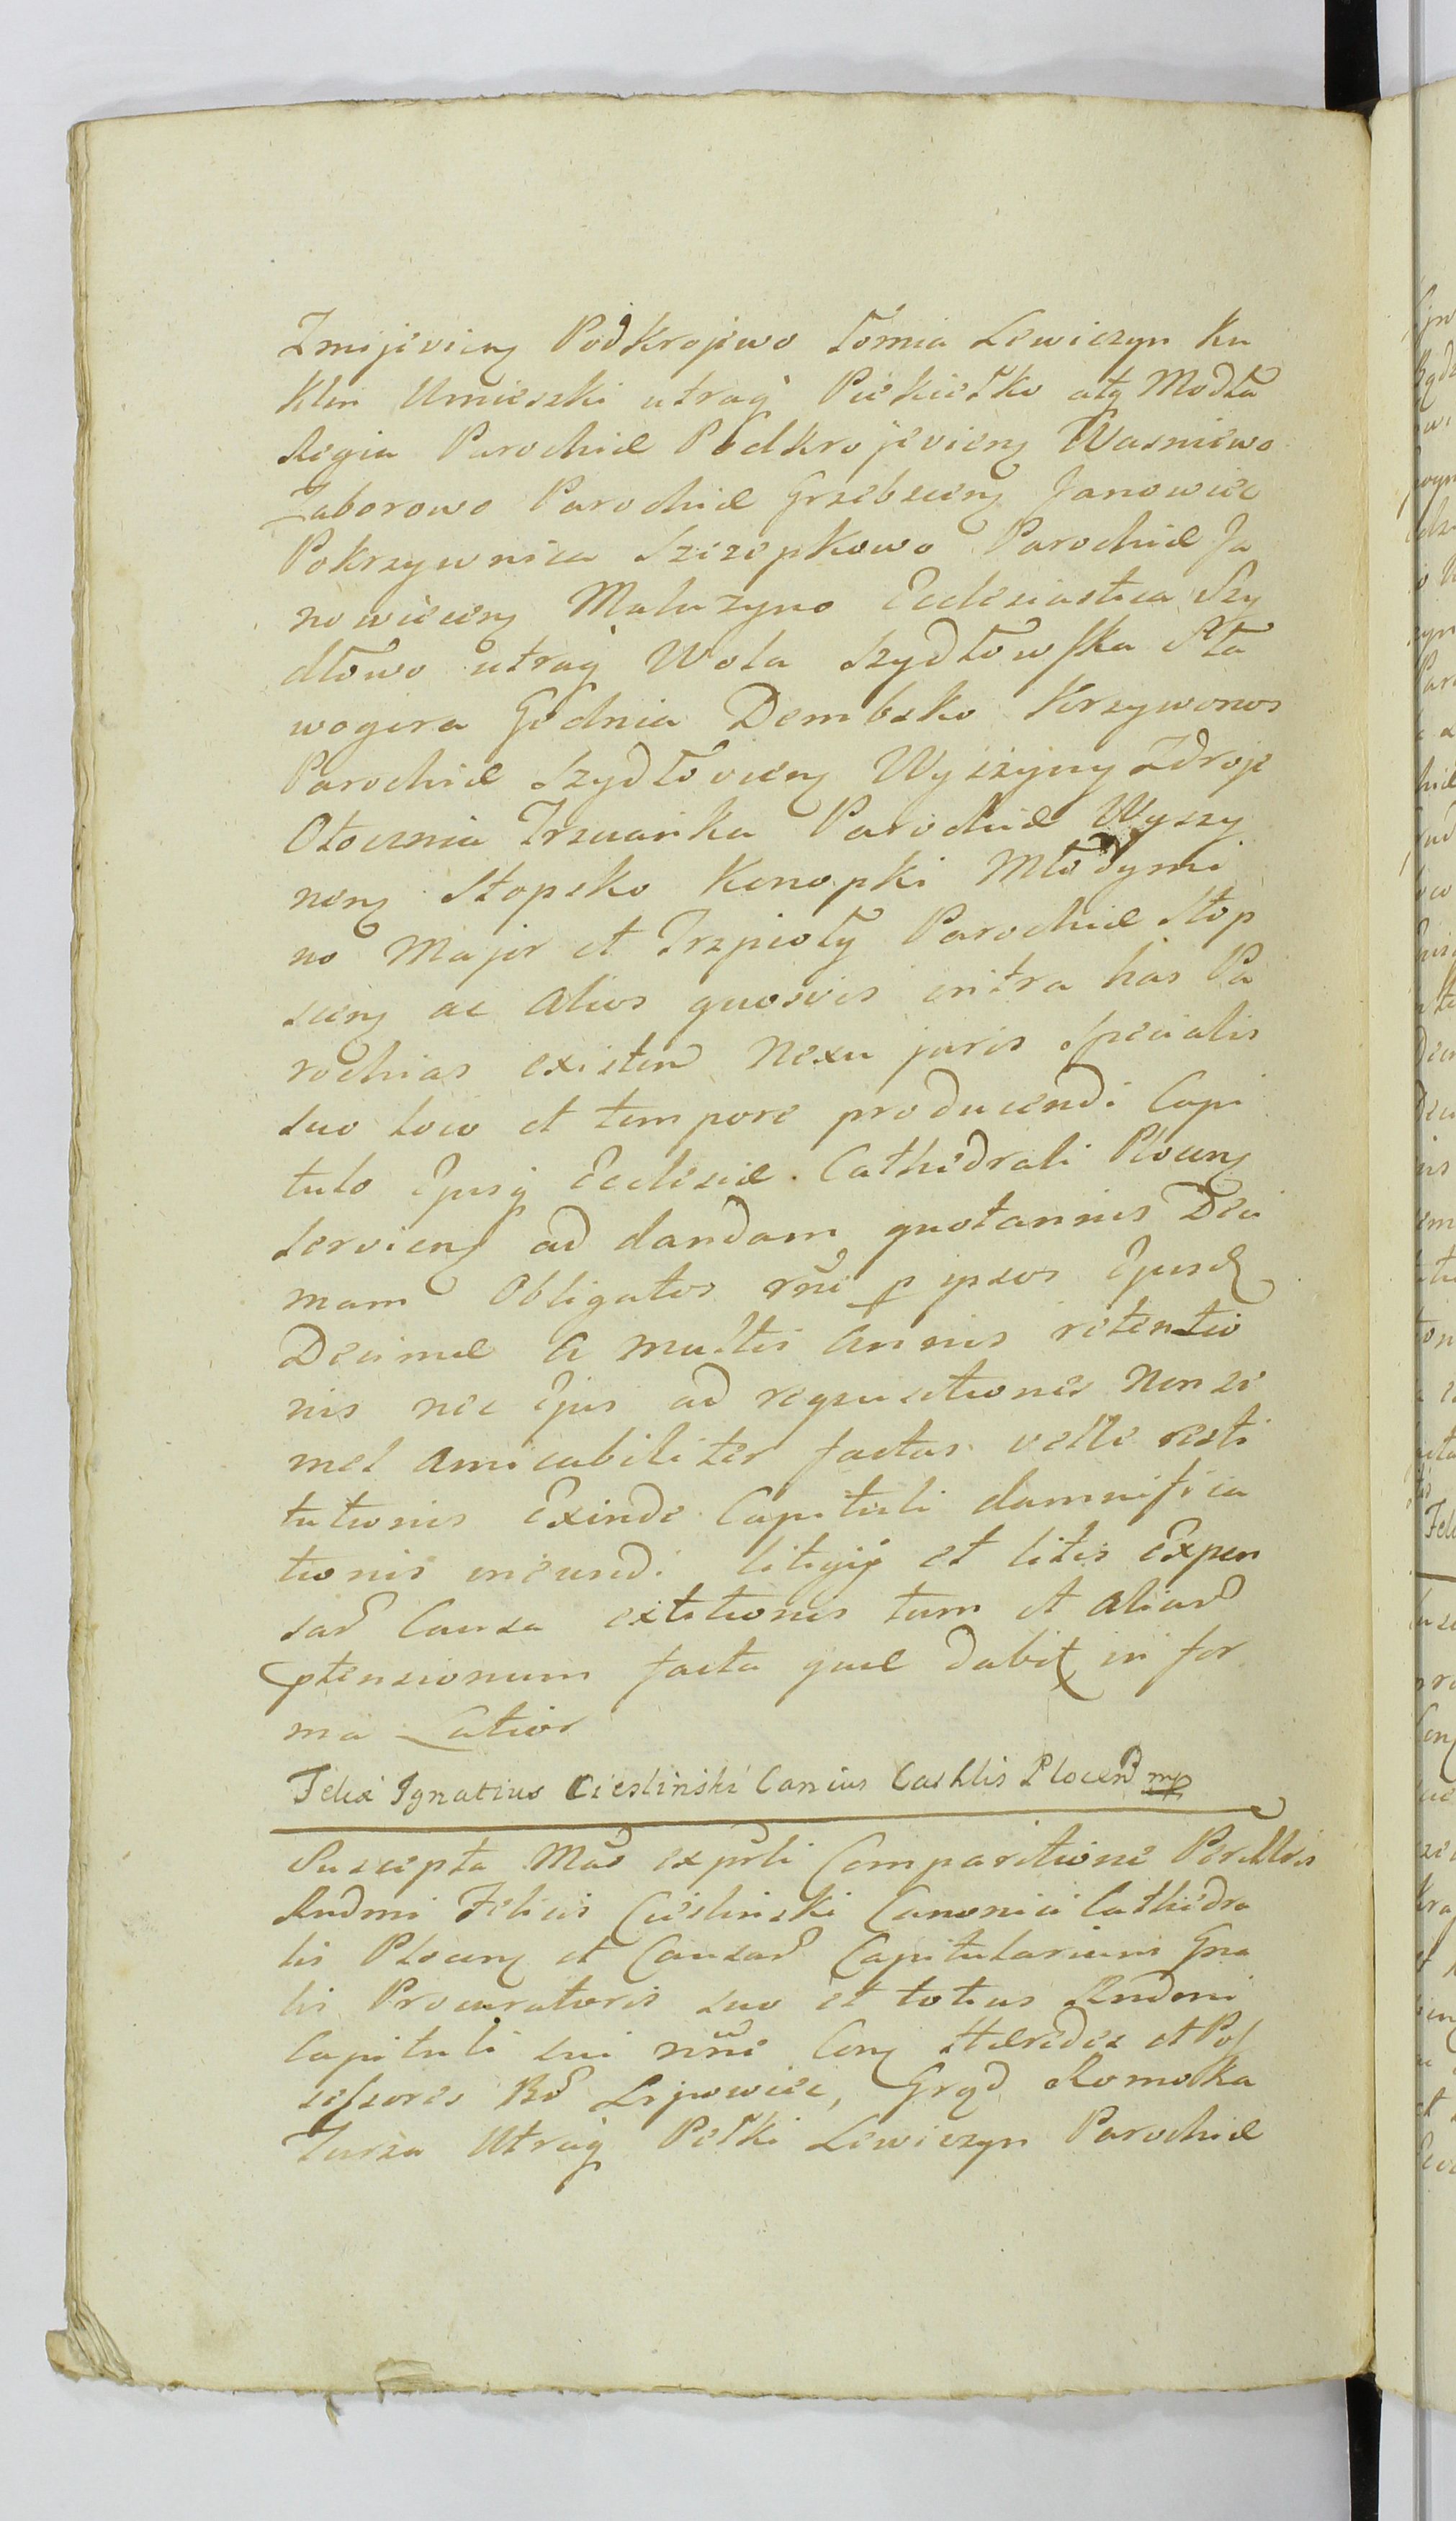 Zmijevien Podkrajewo Łomia Lewiczyn Ku
Klin Umieszki utraq Piekiełko atq Modła
Regia Parochiæ Podkrojevien Wasniewo
Zaborowo Parochiæ Grzebscen Janowiec
Pokrzywnica Szczepkowo Parochiæ Ja
nowiecen Maluzyno Ecclesiastica Szy
dłowo utraq Wola Szydłowska Sła
wogora Godnia Dembsko Krzywonos
Parochiæ Szydłovien Wyszyny Zdroje
Otocznia Trzcianka Parochiæ Wyszy
nen Stopsko Konopki Młodymi
no Major et Trzpioły Parochiæ Stop
scen ac alios quosvis intra has Pa
rochias existen Nexu juris specialis
suo loco et tempore producendi Capi
tulo Ejusq Ecclesiæ Cathedrali Plocen
servien ad dandam quotannis Deci
mam Obligatos rñe p ipsos Ejusd
Decimæ a multis annis retentio
nis nec Ejus ad requisitiones non se
mel amicabiliter factas velle resti
tutionis Exinde Capituli damnifica
tionis incursæ litigij et litis Expen
sar Causa extitionis tum et aliar
ptensionum facta quæ dabit in for
ma Latior
Felix Ignatius Ciesliński Canius Cathlis Plocen mp
Suscepta Mãd exprli Comparitione Perillris
Rndmi Felicis Cieslinski Canonici Cathedra
lis Plocen et Causar Capitularium Gna
lis Procuratoris suo et totius Rndmi
Capituli sui nñe Con Hæredes et Pos
sessores Bor Lipowiec, Grąd Romoka
Turza Utraq Pełki Lewiczyn Parochiæ